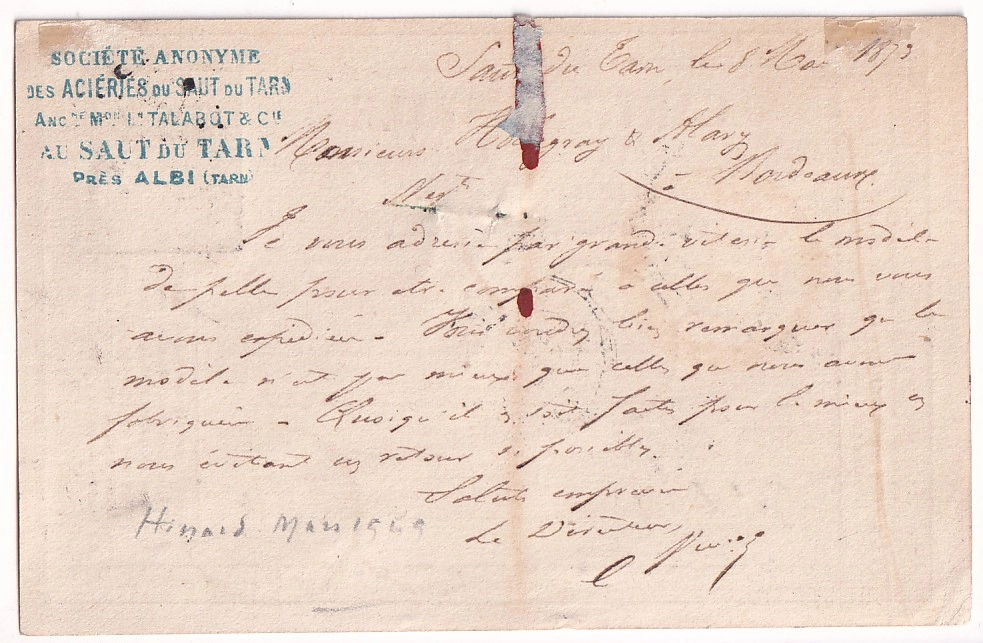 SOCIÉTÉ ANONYME
DES ACIÉRIES DU SAUT DU TARN
ANCNE MON LN TALABOT & CIE
AU SAUT DU TARN
PRÈS ALBI (TARN)
Saut du Tarn, le 8 Mai 1873
Messieurs & Alary
à Bordeaux
Je vous adresse par grande vitesse le modèle
de pelle pour être comparé à celles que nous vous
avons expédiées. Vous voudrez bien remarquer que le
modèle n'est pas mieux que celles que nous avons
fabriquées. Quoiqu'il en soit faites pour le mieux en
nous évitant un retour si possible.
Saluts empressés
Le Directeur,
Mars 1949